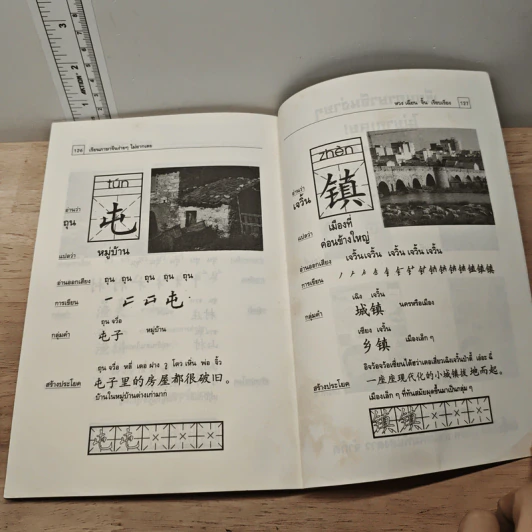 126 เขียนภาษาจีนง่ายๆ ไม่ยากเลย
tún
屯
อ่านว่า
ถุน
แปลว่า หมู่บ้าน
อ่านออกเสียง ถุน ถุน ถุน ถุน
การเขียน
กลุ่มคำ
ถุน จวึ
屯子 หมู่บ้าน
สร้างประโยค
屯子里的房屋都很破旧。
บ้านในหมู่บ้านต่างเก่ามาก
หวง เฉียน จิ้น เรียบเรียง 127
zhèn
镇
อ่านว่า
เจวิ้น
แปลว่า เมืองที่
ค่อนข้างใหญ่
อ่านออกเสียง เจวิ้น เจวิ้น เจวิ้น เจวิ้น เจวิ้น
การเขียน
กลุ่มคำ
เฉิง เจวิ้น
城镇 นครหรือเมือง
เซียง เจวิ้น
乡镇 เมืองเล็ก ๆ
สร้างประโยค
一座座现代化的小城镇拔地而起。
เมืองเล็ก ๆ ที่ทันสมัยผุดขึ้นมาเป็นกลุ่ม ๆ